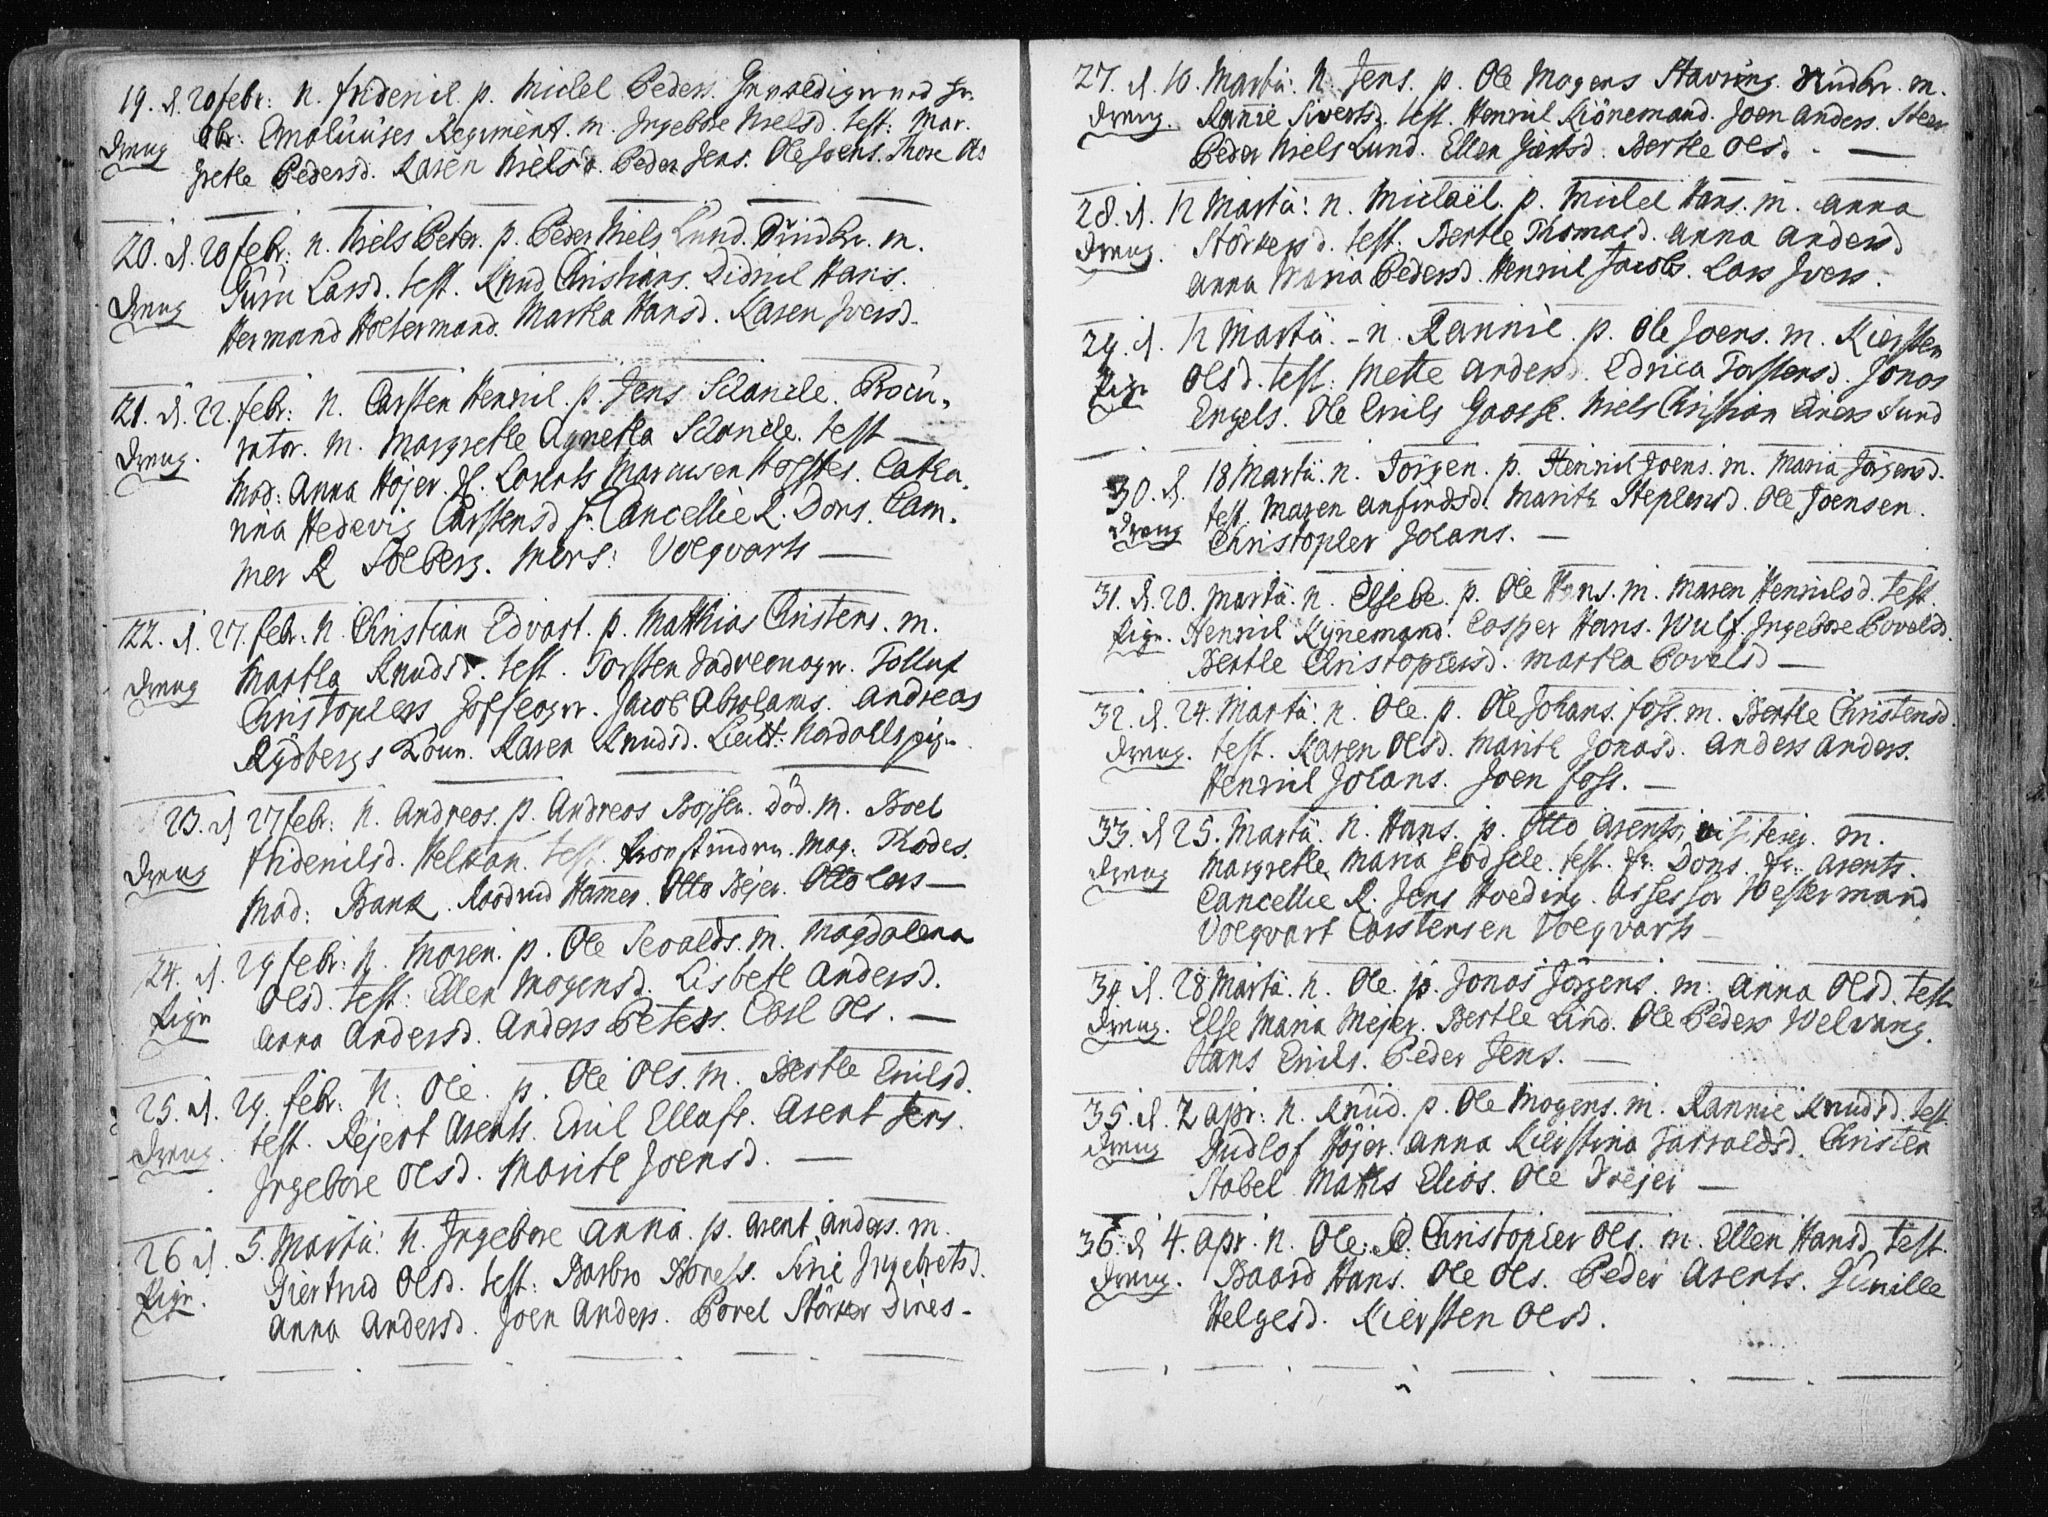 19. d. 20 febr: N. Friderich. p. Michel Peders.
Dreng Obr: Regiment. m. Ingebore Nielsd. test: Mar.
grethe Pedersd. Karen Nielsd. Peder Jens. Ole Joens. Thore Ols
20. d. 20 febr: n. Niels Peter. p. Peder Niels Lund. m.
Dreng Guru Larsd. test. Knud Christians. Didrich Hans.
Hermand Holtermand. Martha Hansd. Karen Iversd.
21. d. 22. febr: N. Carsten Henrich. p. Jens Schancke. Procu-
Dreng. rator. m. Margrethe Agnetha Schancke. test —
Mad: Anna Höjer. Lorents Marcusen Holster. Catha-
rina Hedevig Carstensd fr. Cancellie R. Dons. Cam-
mer R Solberg. Mors: Volqvarts —
22. d. 27. febr. N. Christian Edvart. p. Matthias Christens. m.
Dreng Martha Knudsd. test. Torsten Tolluf
Christophers Jacob Abrahams. Andreas
Rydbergs Koun. Karen Knudsd. Lieut: Nordahls pige
23. d 27 febr: N. Andreas. p. Andreas Bojsen. Död. m. Boel
Dreng Fridenichsd. test. Mag. Thodes.
Mad: Bank. Hammer. Otto Bejer. Otto Lars —
24. d. 29 febr: N. Maren. p. Ole Sevalds. m. Magdalena
Pige Olsd. test: Ellen Mogensd. Lisbeth Andersd.
Anna Andersd. Anders Peters. Carl Ols. —
25. d. 29. febr: N: Ole. p. Ole Ols. m. Berthe Erichsd.
Dreng. test. Rejert Arents. Erich Ellefs. Arent Jens.
Ingebore Olsd. Marith Joensd. —
26 d. 5. Martii: N. Ingebore Anna. p. Arent Anders. m.
Pige. Giertrud Olsd. test: Barbro Siric Ingebretsd.
Anna Andersd. Joen Anders. Povel Störker Dines-
27. d. 10. Martii: N. Jens. p. Ole Mogens Stavring. m.
Dreng. Rannie Sivertsd. test. Henrich Kiönemand. Joen Anders. Steen
Peder Niels Lund. Ellen Berthe Olsd. —
28. d. 12 Martii: n. Michaël. p. Michel Hans. m. Anna
Dreng. Störkersd. test. Berthe Thomasd. Anna Andersd
Anna Maria Pedersd. Henrich Jacobs. Lars Ivers.
29. d. 12 Martii. - n. Rannie. p. Ole Joens. m. Kiersten
Pige Olsd. test: Mette Andersd. Edrica Torstensd. Jonas
Engels. Ole Erichs Gaasse. Niels Christian Einers Lund
30. d. 18 Martii. n. Jörgen. p. Henrich Joens. m. Maria Jörgensd.
Dreng test. Maren Anfindsd. Marith Stephensd. Ole Joensen.
Christopher Johans. —
31. d. 20. Martii. n. Elsebe. p. Ole Hans. m. Maren Henrichsd. test.
Pige. Henrich Kynemand. Casper Hans. Wulf. Ingebore Povelsd.
Berthe Christophersd. Martha Povelsd —
32. d. 24. Martii. n. Ole. p. Ole Johans. foss. m. Berthe Christensd.
Dreng. test. Karen Olsd. Marith Jonasd. Anders Anders.
Henrich Johans. Joen foss. —
33. d 25. Martii. N. Hans. p. Otto Arents. m.
Dreng Margrethe Maria Gödsche. test. fr. Dons. fr: Arents.
Cancellie R. Jens Hveding. Assessor Westermand
Volqvart Carstensen Volqvarts —
34. d. 28 Martii. n. Ole. p. Jonas Jörgens. m: Anna Olsd. test
Dreng. Else Maria Mejer. Berthe Lind. Ole Peders Welvang.
Hans Erichs. Peder Jens. —
35. d. 2 apr: n. Knud. p. Ole Mogens. m. Rannie Knudsd. test
Dreng Ludlof Höjer. Anna Kierstina Christen
Stabel. Mathis Elias. Ole Trejer —
36. d 4. apr. n. Ole. p. Christopher Ols. m. Ellen Hansd. test.
Dreng. Baard Hans. Ole Ols. Peder Arents. Gunille
Helgesd. Kiersten Olsd.